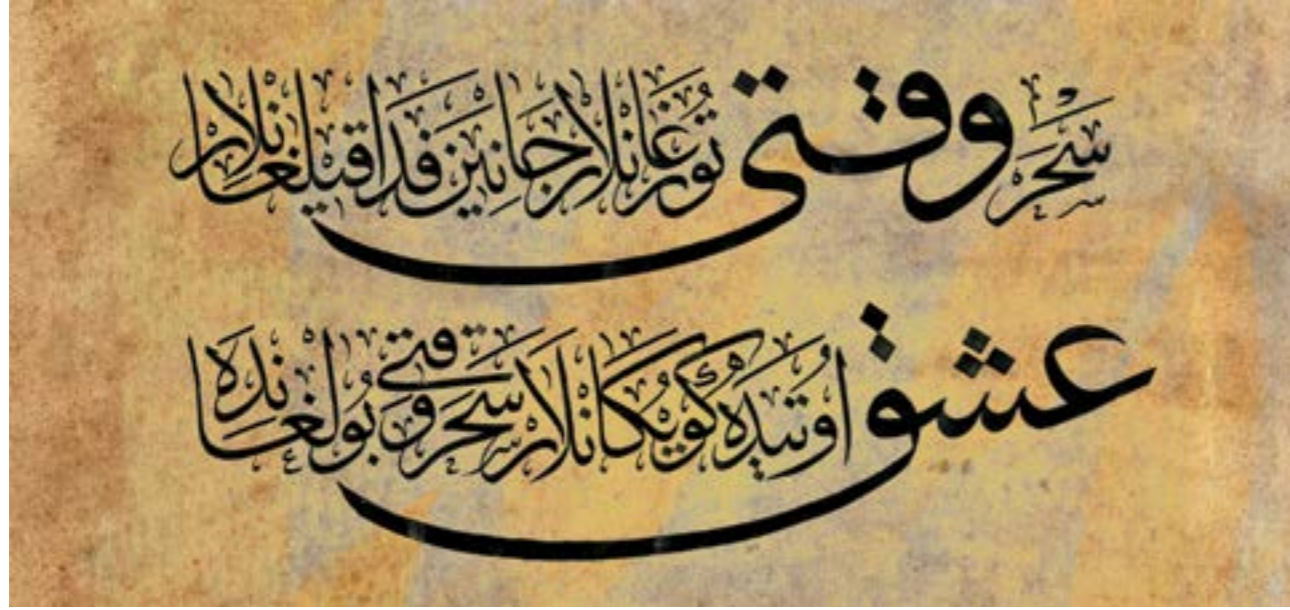 سحر وقتى تورغانلار جانين فدا قيلغانلار
عشق اوتيده كويكانلار سحر وقتى بولغانده